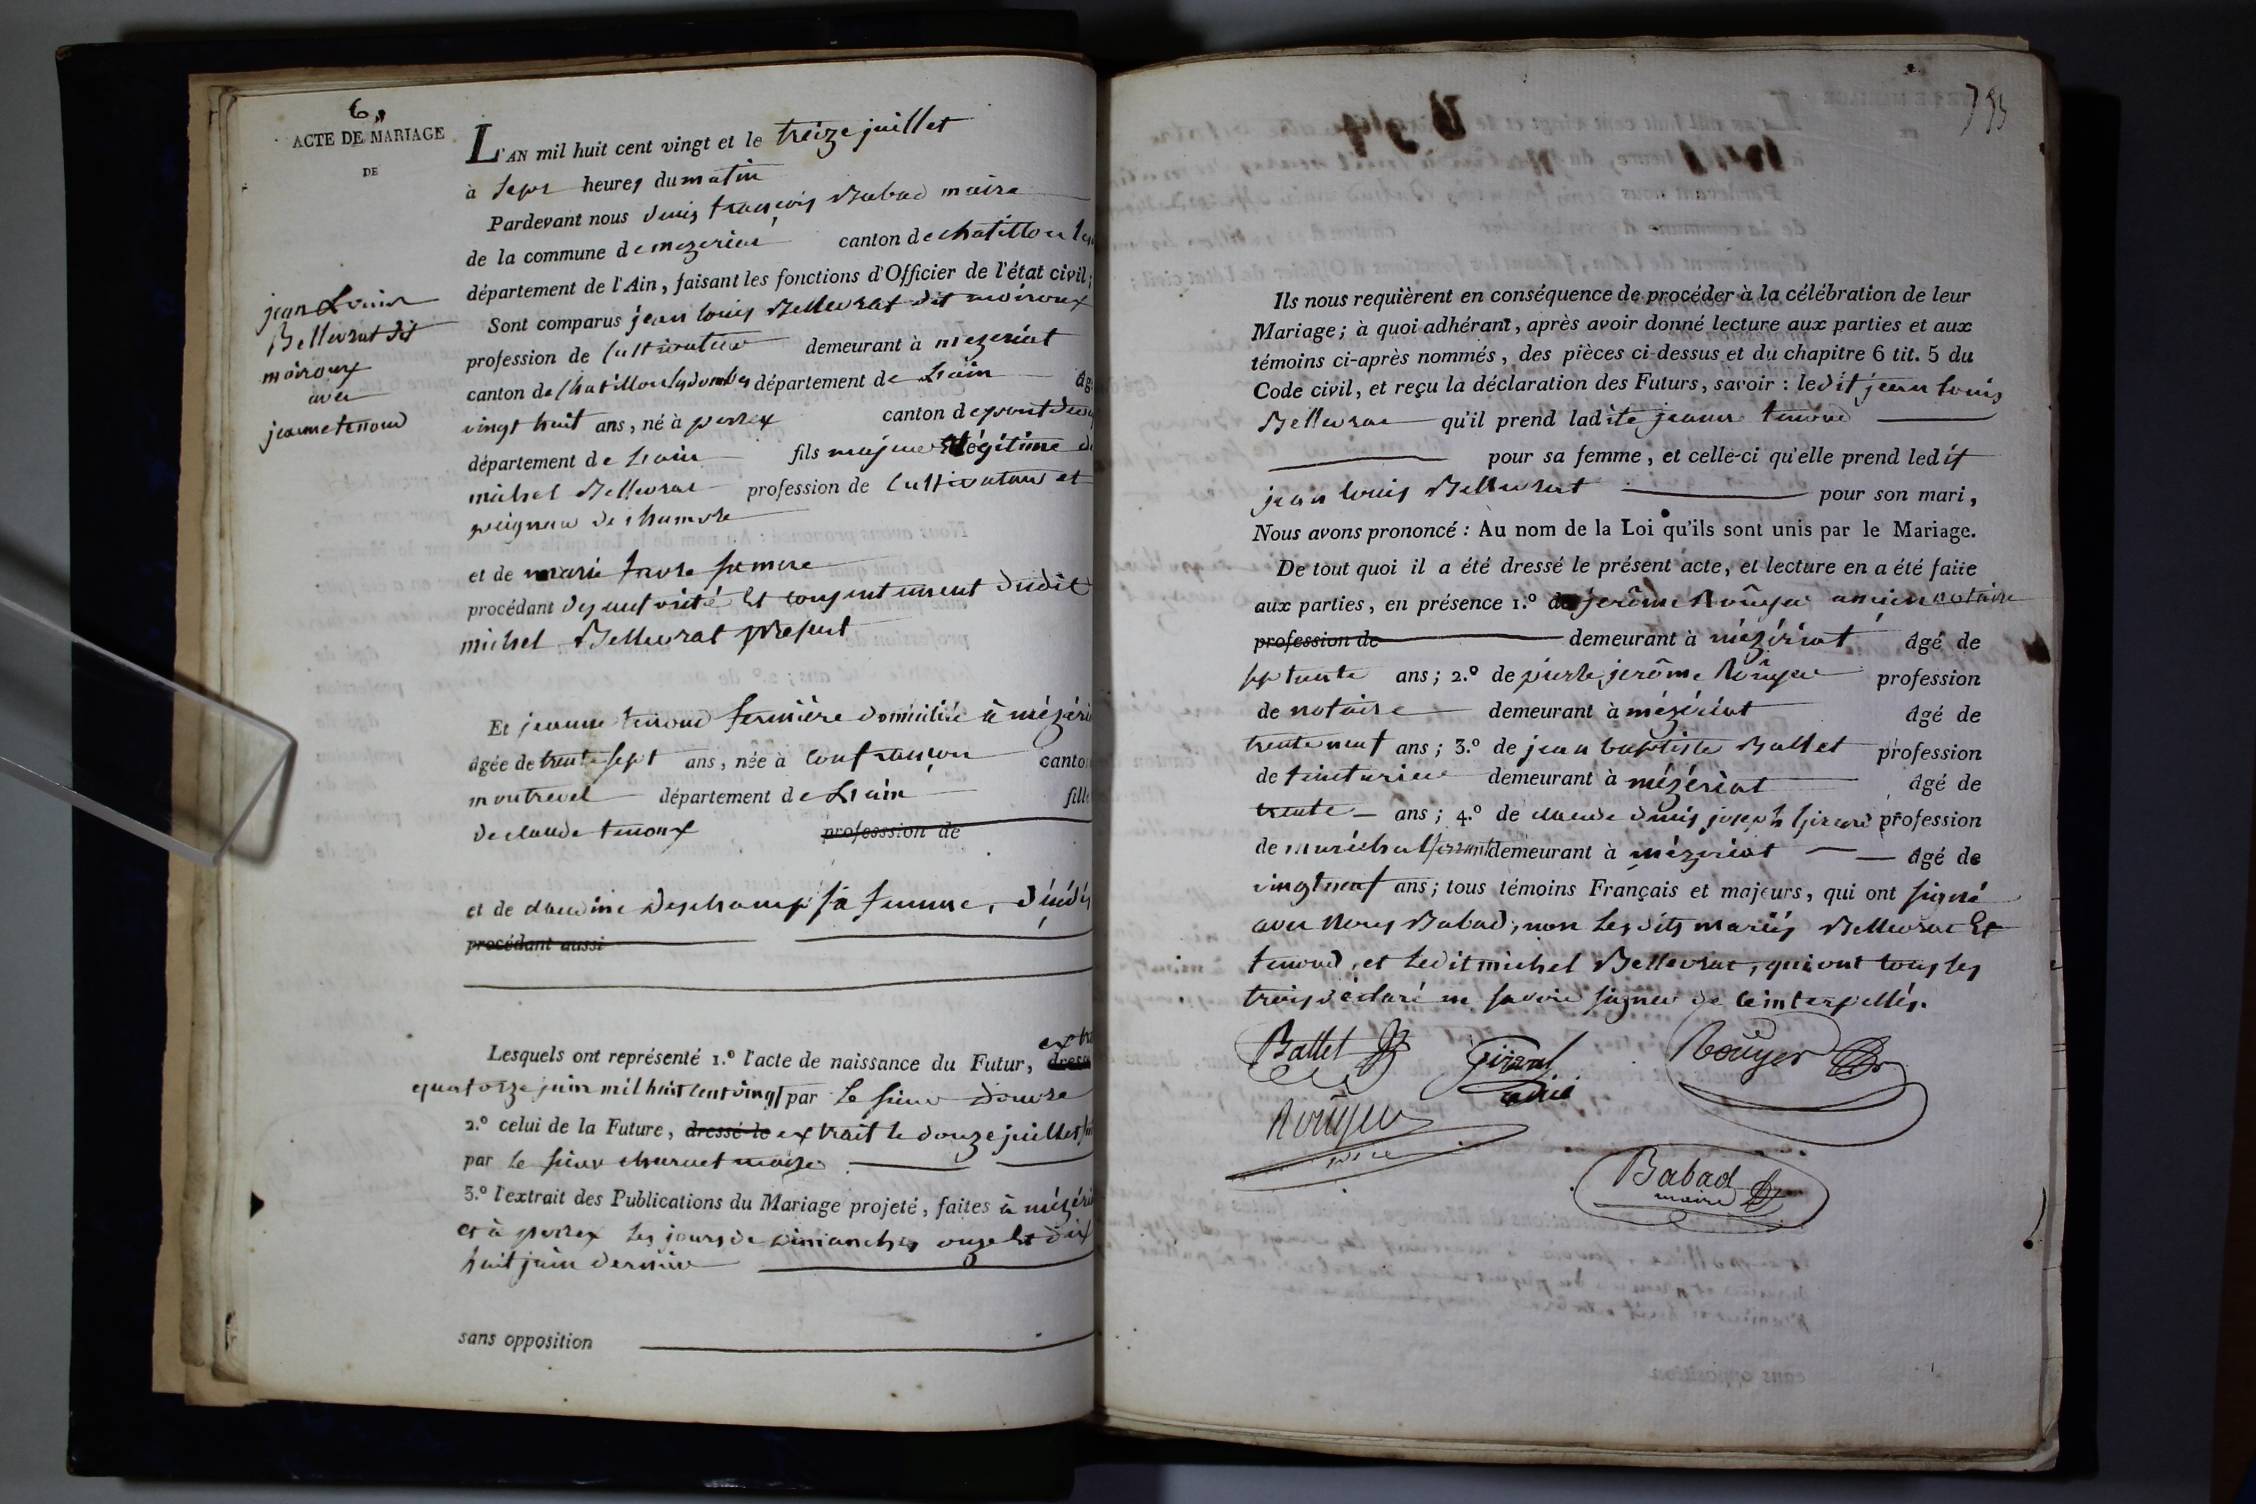 6
ACTE DE MARIAGE
DE
jean Louis
Bellevrat dit
moiroux
avec
jeanne tenoud
L'AN mil huit cent vingt et le treize juillet
à sept heures du matin
Pardevant nous denis françois Babad maire
de la commune de mezeriat canton de chatillon les
département de l'Ain, faisant les fonctions d'Officier de l'état civil;
Sont comparus jean louis Bellevrat dit moiroux
profession de Cultivateur demeurant à mezeriat
canton de Chatillon les dombes département de L'ain âgé
vingt huit ans, né à perrex canton de pont de
département de L'ain fils majeur légitime de
michel Bellevrat profession de Cultivateur et
peigneur de chamvre
et de marie favre sa mere
procédant des autorité et consentement dudit
michel Bellevrat présent
Et jeanne tenoud fermière domiciliée à mézéri
âgée de trente sept ans, née à Confrançon canton
montrevel département de L'ain fille
de claude tenoux profession de
et de claudine Deschamp sa femme, décédés
procédant aussi
Lesquels ont représenté 1.º l'acte de naissance du Futur, extra
quatorze juin mil huit cent vingt par le sieur
2.º celui de la Future, dressé le extrait le douze juillet
par le sieur charnet maire
3.º l'extrait des Publications du Mariage projeté, faites à mézéri
et à perrex les jours de dimanches onze et dix
huit juin dernier
sans opposition
Ils nous requièrent en conséquence de procéder à la célébration de leur
Mariage; à quoi adhérant, après avoir donné lecture aux parties et aux
témoins ci-après nommés, des pièces ci-dessus et du chapitre 6 tit. 5 du
Code civil, et reçu la déclaration des Futurs, savoir: ledit jean louis
Bellevrat qu'il prend ladite jeanne tenoud
pour sa femme, et celle-ci qu'elle prend ledit
jean louis Bellevrat pour son mari,
Nous avons prononcé: Au nom de la Loi qu'ils sont unis par le Mariage.
De tout quoi il a été dressé le présent acte, et lecture en a été faite
aux parties, en présence 1.º de jerôme Roüyer ancien notaire
profession de demeurant à mézériat âgé de
septante ans; 2.º de pierre jerôme Roüyer profession
de notaire demeurant à mézériat âgé de
trente neuf ans; 3.º de jean baptiste Ballet profession
de teinturier demeurant à mézériat âgé de
trente ans; 4.º de claude denis joseph Girard profession
de maréchal ferrant demeurant à mézériat âgé de
vingt neuf ans; tous témoins Français et majeurs, qui ont signé
avec Nous Babad, non les dits mariés Bellevrat Et
tenoud, et ledit michel Bellevrat, qui ont tous les
trois déclaré ne savoir signer de ce interpellés.
Ballet
Girard
Roüyer
Roüyer
Babad
maire